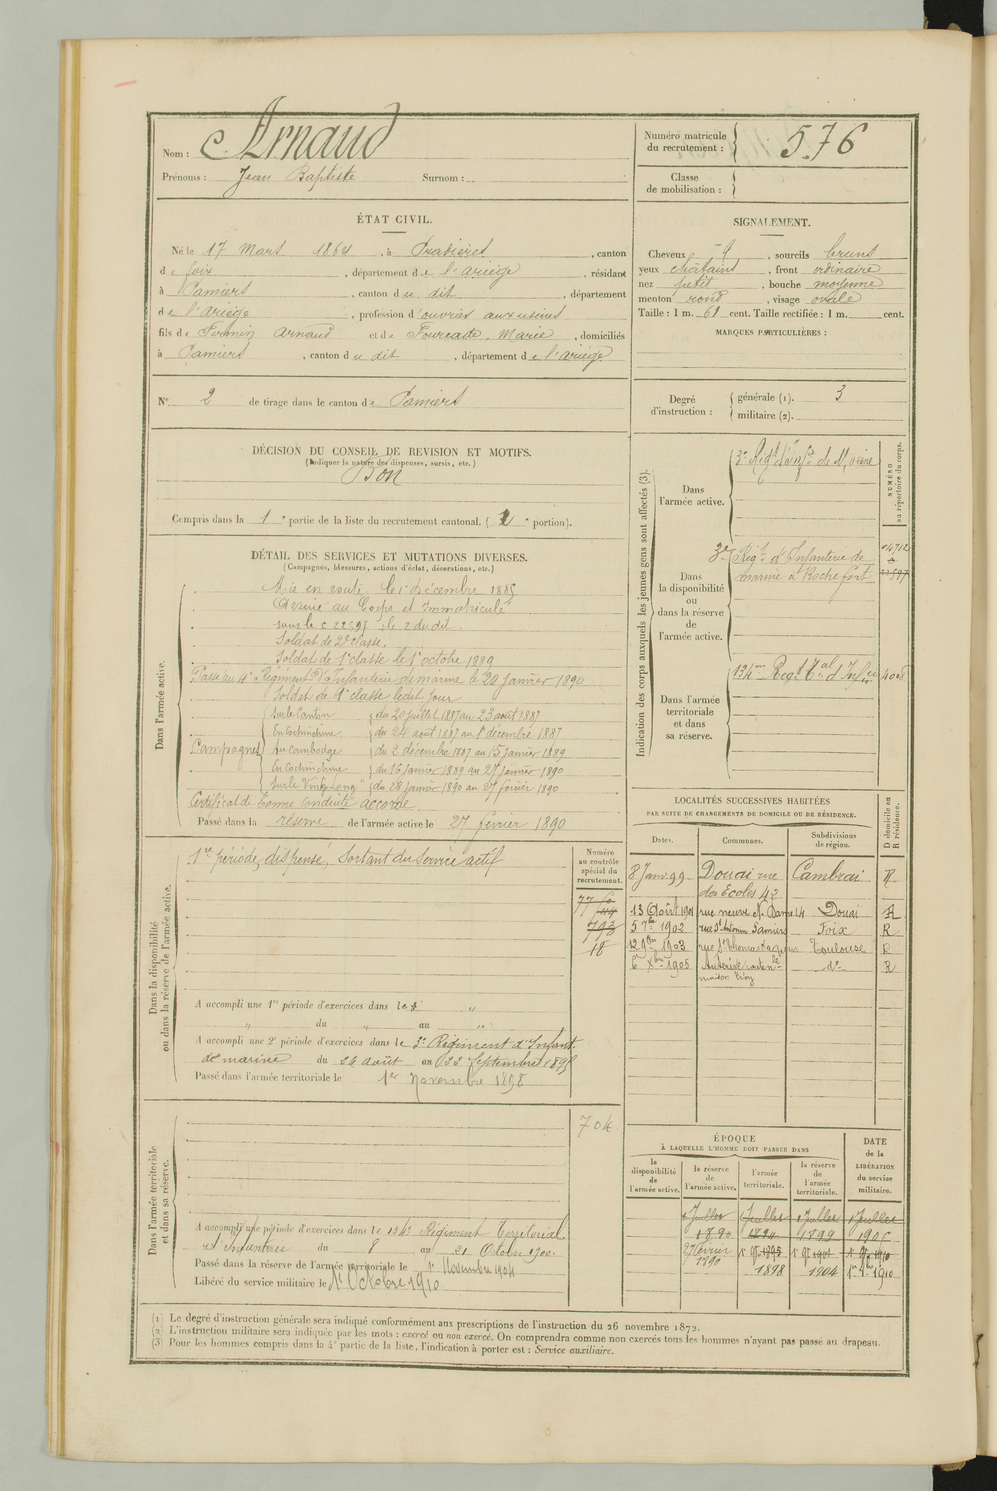 Nom : Arnaud
Prénoms : Jean Baptiste Surnom :
Numéro matricule du recrutement : 576
Classe de mobilisation :
ÉTAT CIVIL.
Né le 17 Mars 1864, à Pradières, canton
de foix, département de l'ariège, résidant
à Pamiers, canton du dit, département
de l'ariège, profession d'ouvrier aux usines
fils de Firmin Arnaud et de Fourcade, Marie, domiciliés
à Pamiers, canton du dit, département de l'ariège
N° 2 de tirage dans le canton de Pamiers
SIGNALEMENT.
Cheveux, sourcils bruns
yeux châtains, front ordinaire
nez petit, bouche moyenne
menton rond, visage ovale
Taille : 1 m. 61 cent. Taille rectifiée : 1 m. cent.
MARQUES PARTICULIÈRES :
Degré d'instruction : générale (1). 3
militaire (2).
DÉCISION DU CONSEIL DE REVISION ET MOTIFS.
(Indiquer la nature des dispenses, sursis, etc.)
Bon
Compris dans la 1e partie de la liste du recrutement cantonal. ( e portion).
DÉTAIL DES SERVICES ET MUTATIONS DIVERSES.
(Campagnes, blessures, actions d'éclat, décorations, etc.)
Dans l'armée active.
Mis en route le 1er décembre 1885
Arrivé au Corps et immatriculé
sous le n° 22597, le 2 du dit.
Soldat de 2e classe.
Soldat de 1e classe le 1er octobre 1889
Passé au 4e Régiment d'Infanterie de marine le 20 janvier 1890
Soldat de 1e classe ledit jour
Campagnes
Sur le Canton du 20 juillet 1887 au 23 août 1887
En Cochinchine du 24 août 1887 au 1er décembre 1887
Au Cambodge du 2 décembre 1887 au 15 janvier 1889
En Cochinchine du 16 janvier 1889 au 27 janvier 1890
Sur le du 28 janvier 1890 au 27 février 1890
Certificat de bonne conduite accordé
Passé dans la réserve de l'armée active le 27 février 1890
Indication des corps auxquels les jeunes gens sont affectés (3).
NUMÉRO au répertoire du corps.
Dans l'armée active.
3e Régt d'Infie de Marine
Dans la disponibilité ou dans la réserve de l'armée active.
3e Régt d'Infanterie de
marine à Rochefort
22597
Dans l'armée territoriale et dans sa réserve.
134me Régt Tal d'Infie
Dans la disponibilité ou dans la réserve de l'armée active.
1re période, dispensé, Sortant du Service actif
Numéro au contrôle spécial du recrutement.
793
18
A accompli une 1re période d'exercices dans le "
" du " au "
A accompli une 2e période d'exercices dans le 3e Régiment d'Infant.
de marine du 26 août au 22 Septembre 1895
Passé dans l'armée territoriale le 1er Novembre 1898
LOCALITÉS SUCCESSIVES HABITÉES
PAR SUITE DE CHANGEMENTS DE DOMICILE OU DE RÉSIDENCE.
Dates. Communes. Subdivisions de région. D domicile ou R résidence.
8 Janv. 99 Douai rue des Ecoles 42 Cambrai R
13 Août 1901 rue neuve N. Dame 14 Douai R
5 7bre 1902 rue St Antonin Pamiers Foix R
12 9bre 1903 rue St Thomas d'Aquin Toulouse R
6 Xbre 1905 Auterive do R
Dans l'armée territoriale et dans sa réserve.
704
A accompli une période d'exercices dans le 134e Régiment Territorial
d'Infanterie du 8 au 21 Octobre 1900.
Passé dans la réserve de l'armée territoriale le 1er Novembre 1904
Libéré du service militaire le 1er Octobre 1910
ÉPOQUE
À LAQUELLE L'HOMME DOIT PASSER DANS
la disponibilité de l'armée active. la réserve de l'armée active. l'armée territoriale. la réserve de l'armée territoriale. DATE de la LIBÉRATION du service militaire.
1 Juillet 1890 1 Juillet 1894 1 Juillet 1899 1 Juillet 1905
27 février 1890 1er 9bre 1895 1er 9bre 1901 1er 9bre 1910
1898 1904 1910
(1) Le degré d'instruction générale sera indiqué conformément aux prescriptions de l'instruction du 26 novembre 1872.
(2) L'instruction militaire sera indiquée par les mots : exercé ou non exercé. On comprendra comme non exercés tous les hommes n'ayant pas passé au drapeau.
(3) Pour les hommes compris dans la 4e partie de la liste, l'indication à porter est : Service auxiliaire.